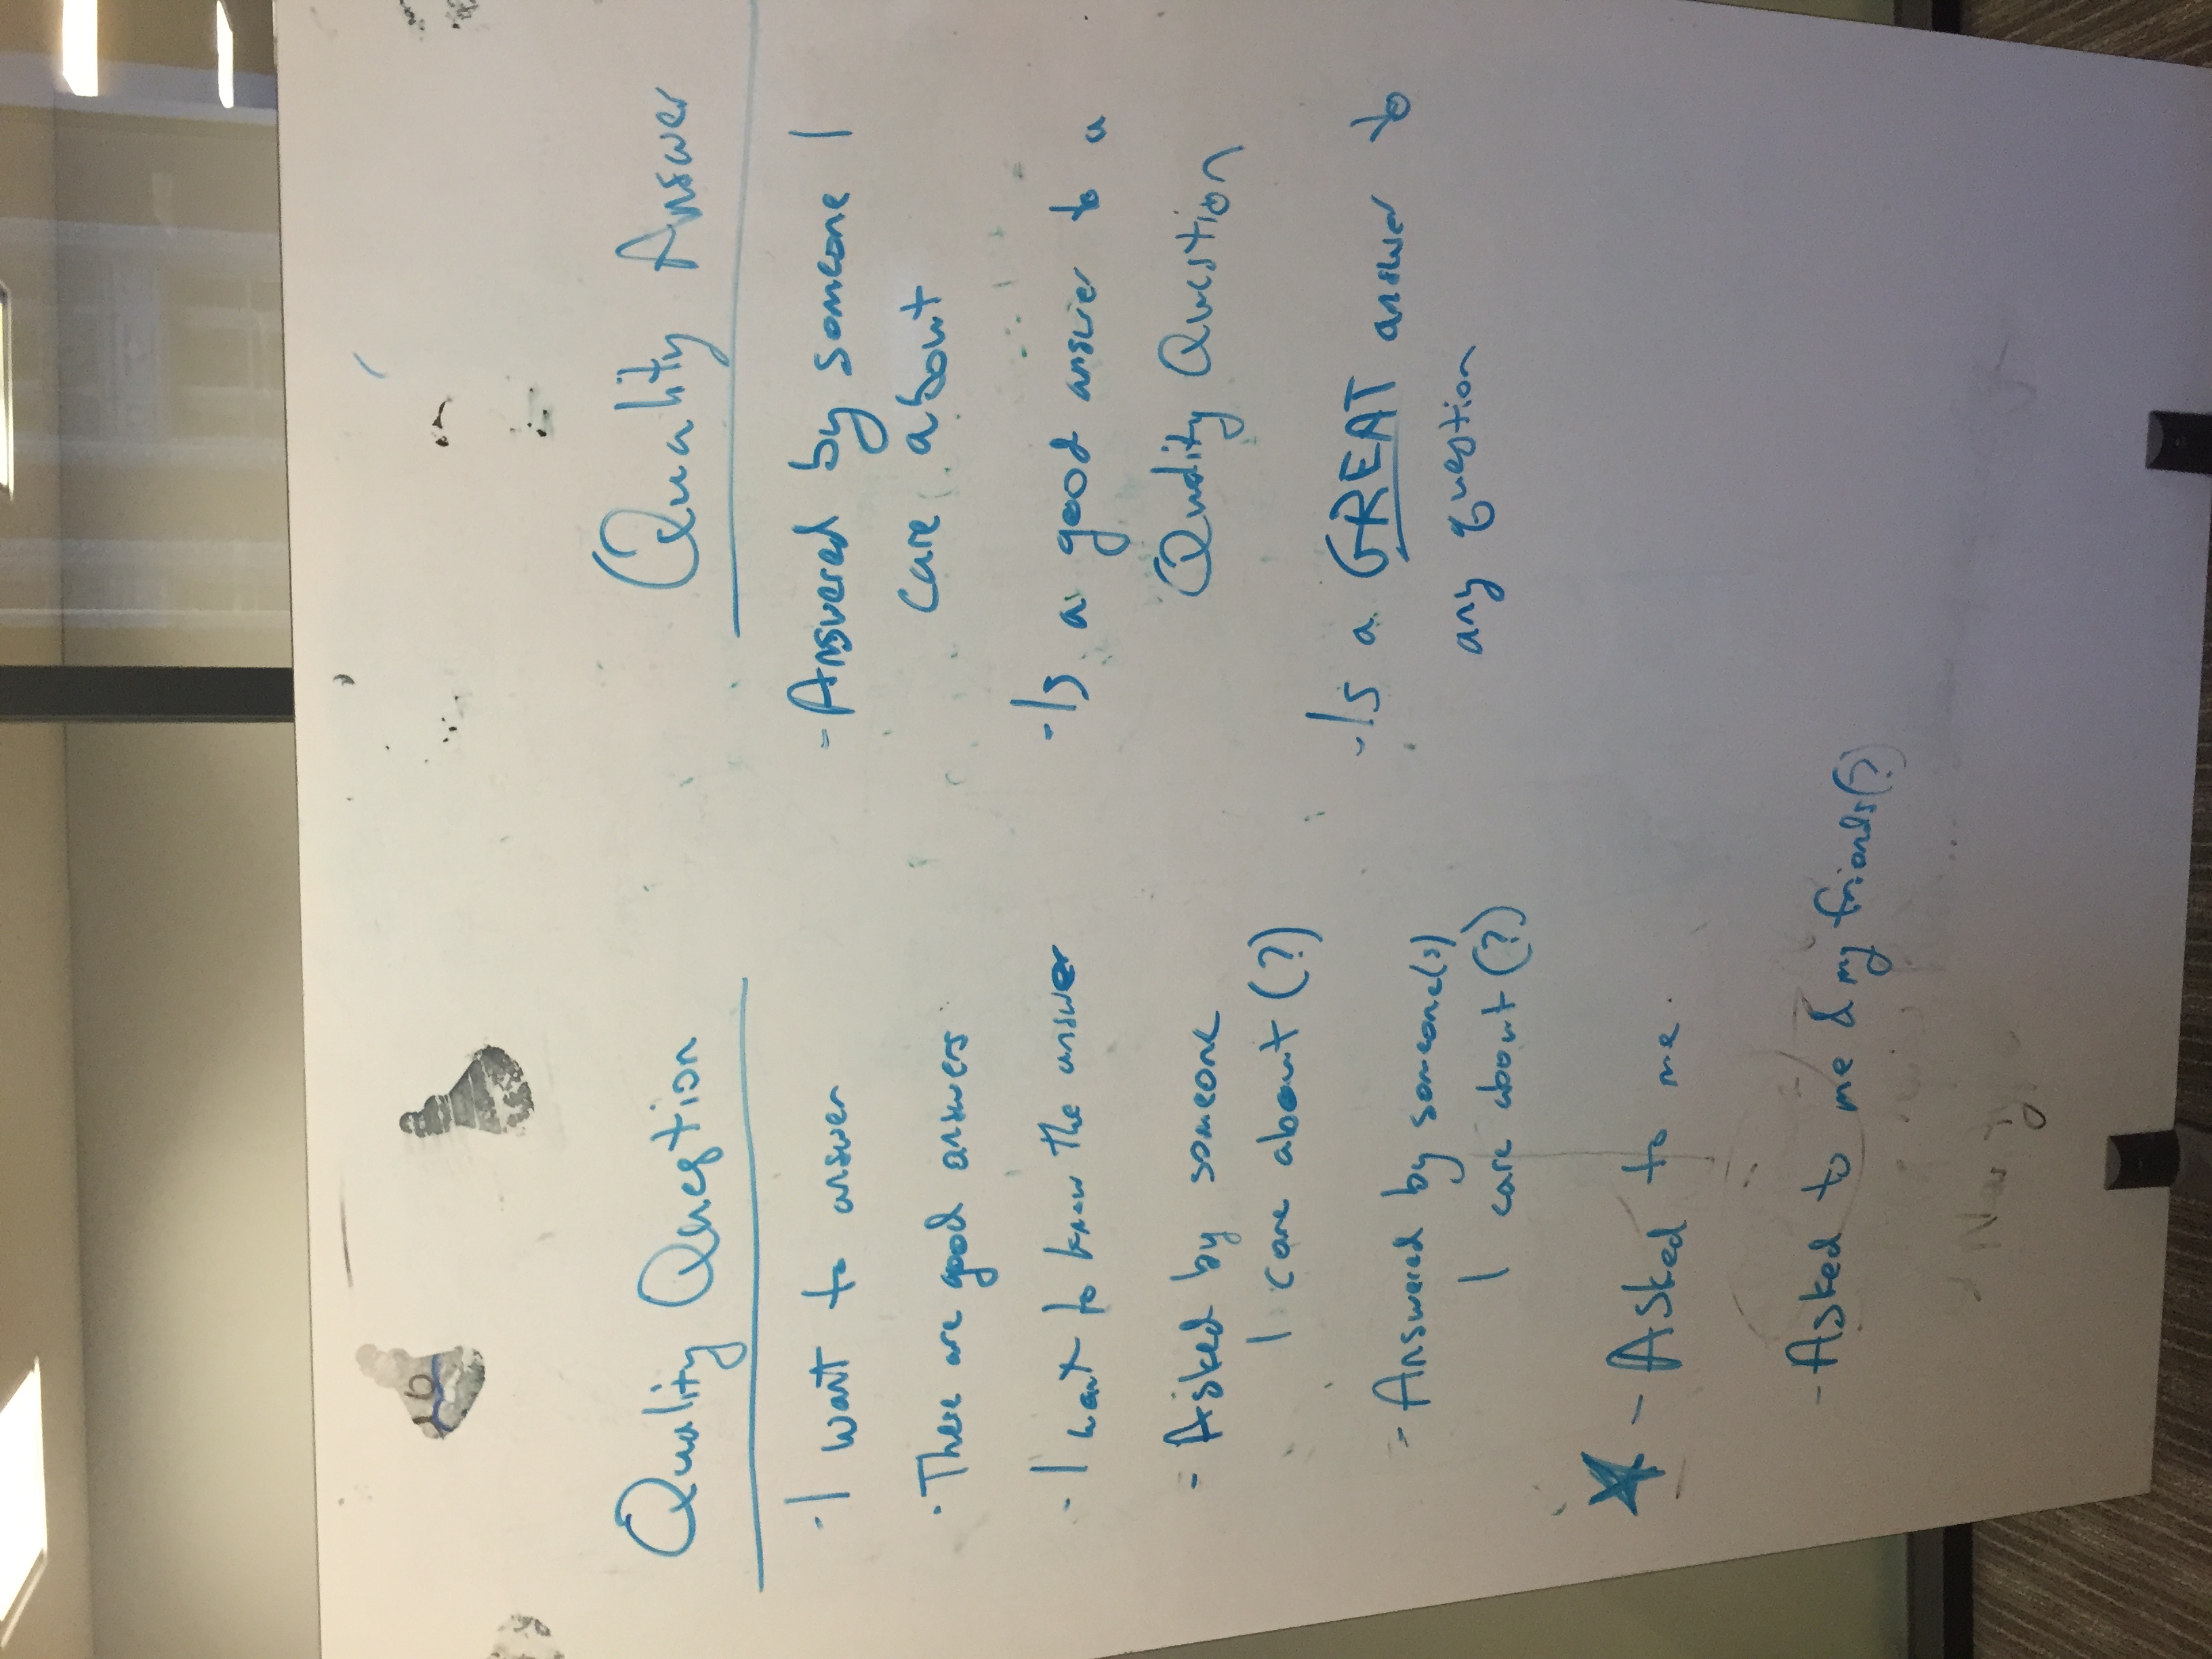 Quality Question
- I want to answer
- There are good answers
- I want to know the answer
= Asked by someone
I care about (?)
= Answered by someone(s)
I care about (?)
★ - Asked to me
- Asked to me & my friends(?)
Quality Answer
= Answered by someone I
care about
- Is a good answer to a
Quality Question
- Is a GREAT answer to
any question